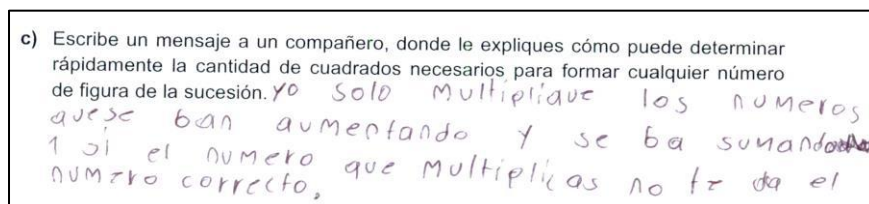 c) Escribe un mensaje a un compañero, donde le expliques cómo puede determinar
rápidamente la cantidad de cuadrados necesarios para formar cualquier número
de figura de la sucesión. yo solo multiplique los numeros
quese ban aumentando y se ba sumando
1 si el numero que multiplicas no te da el
numero correcto.